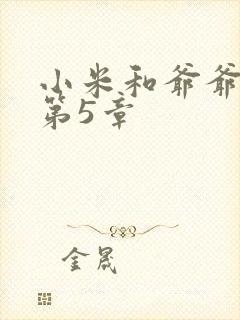 小米和爷爷
第5章
金晟